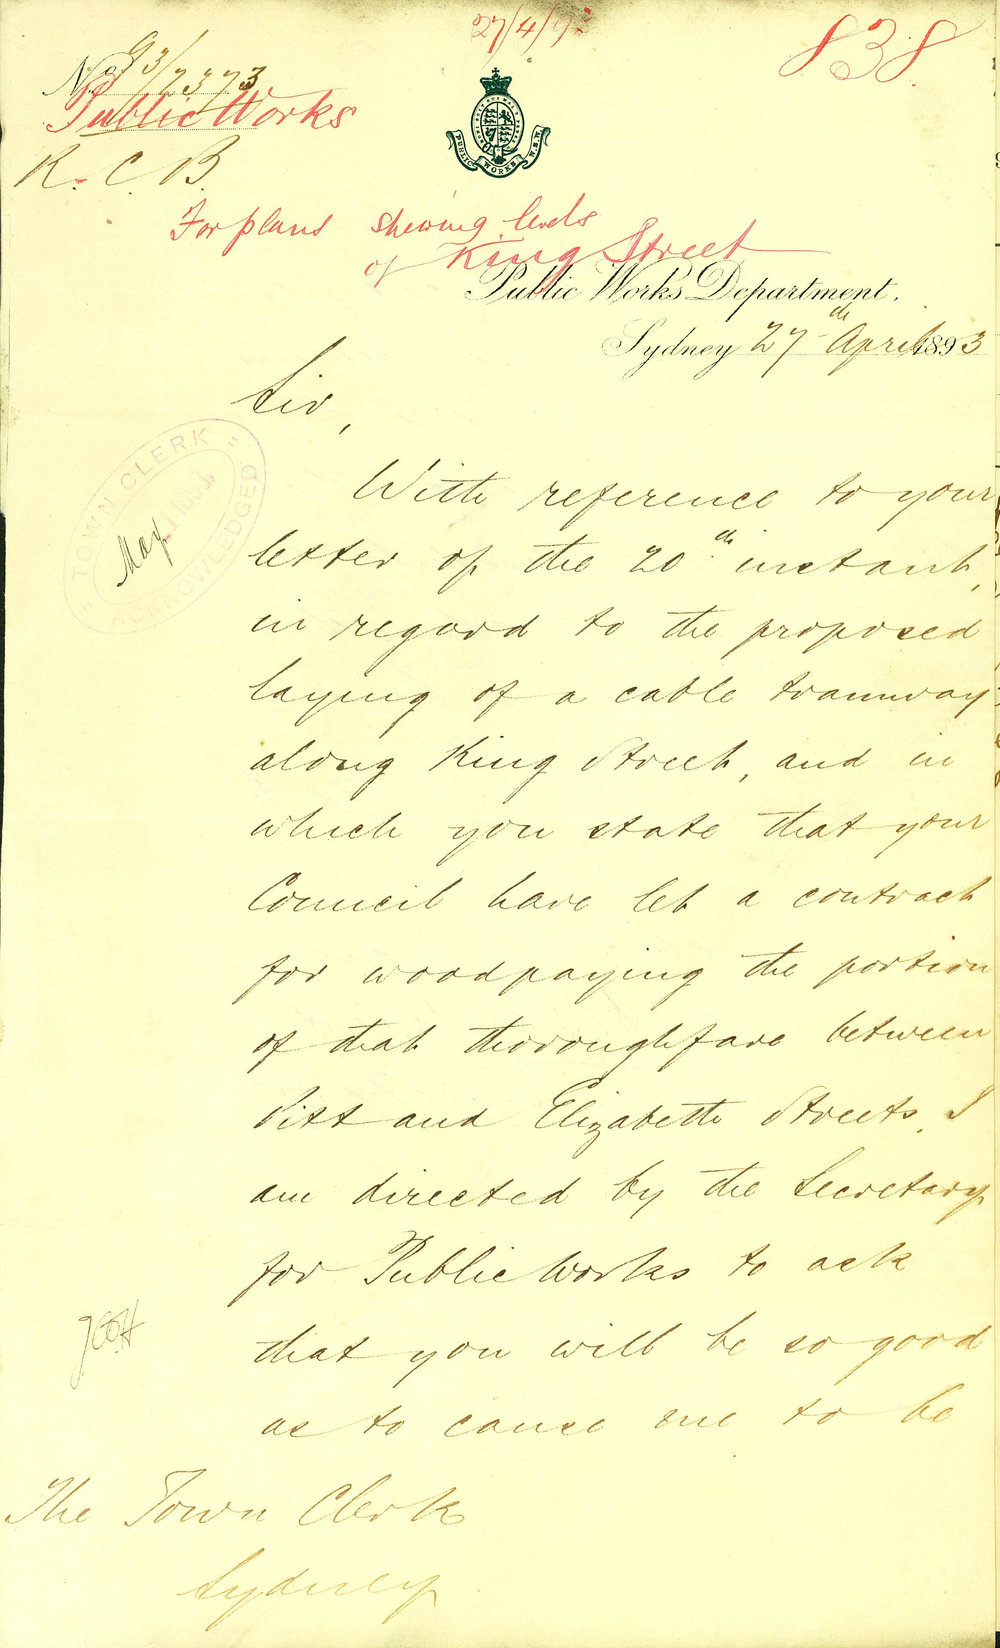 27/4/93
838
No. 93/2373
Public Works
R. C. B.
PUBLIC WORKS N.S.W.
For plans shewing levels
of King Street
Public Works Department,
Sydney 27th April 1893
Sir,
"TOWN CLERK"
May 1 1893
ACKNOWLEDGED
With reference to your
letter of the 20th instant,
in regard to the proposed
laying of a cable tramway
along King Street, and in
which you state that your
Council have let a contract
for woodpaving the portion
of that thoroughfare between
Pitt and Elizabeth Streets, I
am directed by the Secretary
for Public Works to ask
that you will be so good
as to cause me to be
The Town Clerk
Sydney